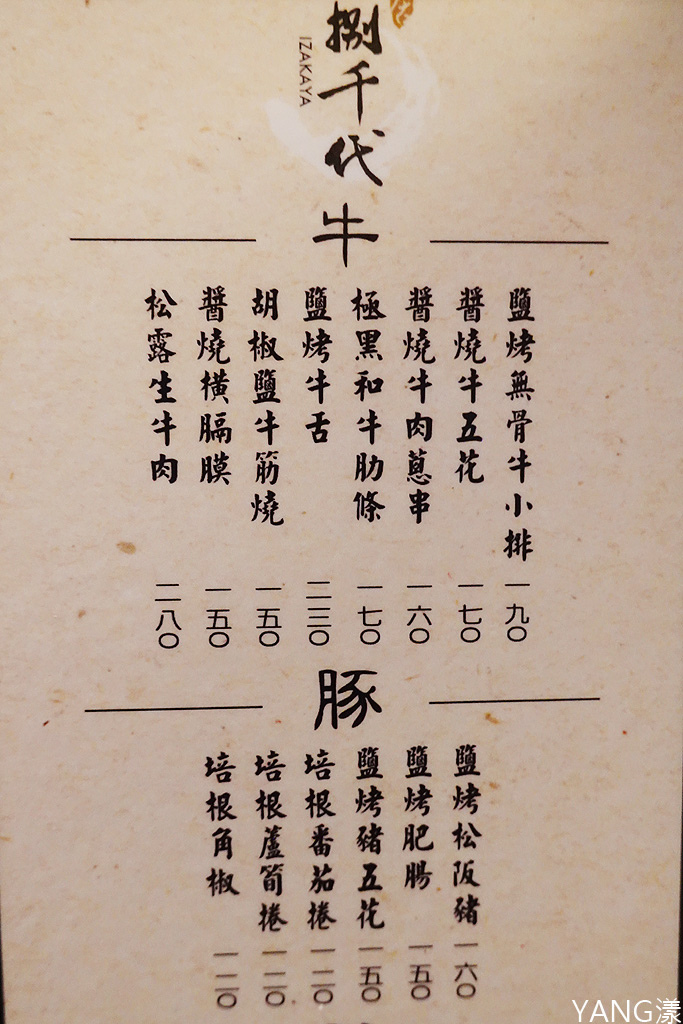 捌千代
IZAKAYA
牛
鹽烤無骨牛小排 一九〇
醬燒牛五花 一七〇
醬燒牛肉蔥串 一六〇
極黑和牛肋條 一七〇
鹽烤牛舌 二三〇
胡椒鹽牛筋燒 一五〇
醬燒橫膈膜 一五〇
松露生牛肉 二八〇
豚
鹽烤松阪豬 一六〇
鹽烤肥腸 一五〇
鹽烤豬五花 一五〇
培根番茄捲 一二〇
培根蘆筍捲 一二〇
培根角椒 一二〇
YANG漾